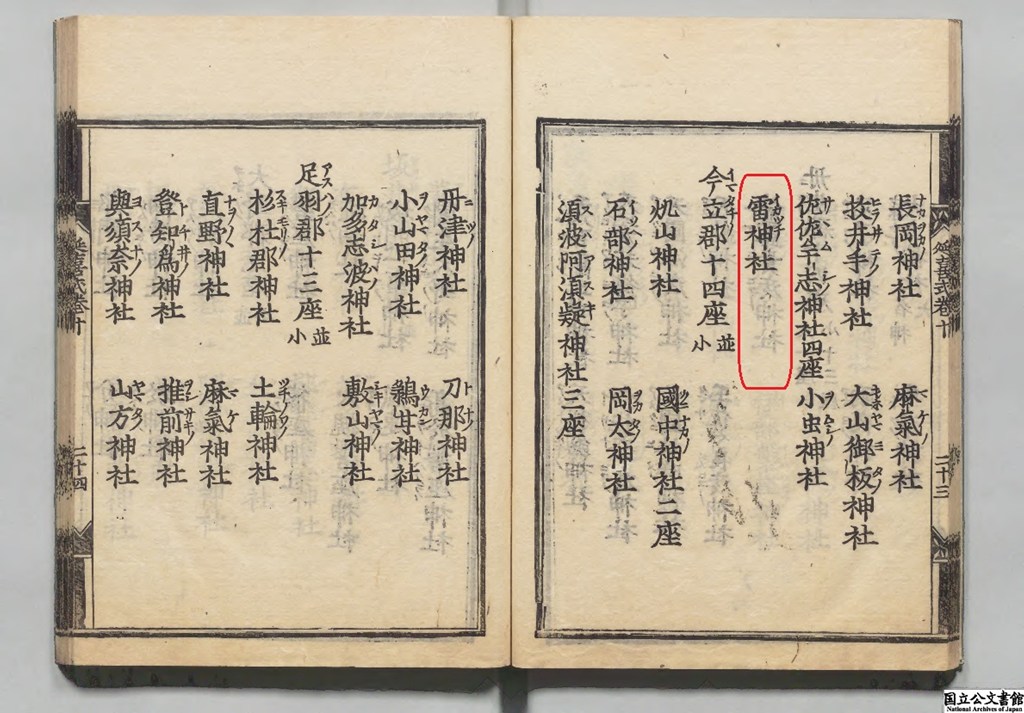 長岡神社 麻氣神社
枚井手神社 大山御板神社
佐佐牟志神社四座 小虫神社
雷神社
今立郡十四座 並小
刀山神社 國中神社二座
石部神社 岡太神社
須波阿須疑神社三座
延喜式卷十 二十三
丹津神社 刀那神社
小山田神社 鵜甘神社
加多志波神社 敷山神社
足羽郡十三座 並小
杉杜郡神社 土輪神社
直野神社 麻氣神社
登知爲神社 推前神社
與須奈神社 山方神社
延喜式卷十 二十四
国立公文書館
National Archives of Japan